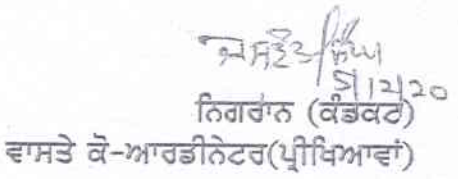 5/12/20
ਨਿਗਰਾਨ (ਕੰਡਕਟ)
ਵਾਸਤੇ ਕੋ-ਆਰਡੀਨੇਟਰ(ਪ੍ਰੀਖਿਆਵਾਂ)